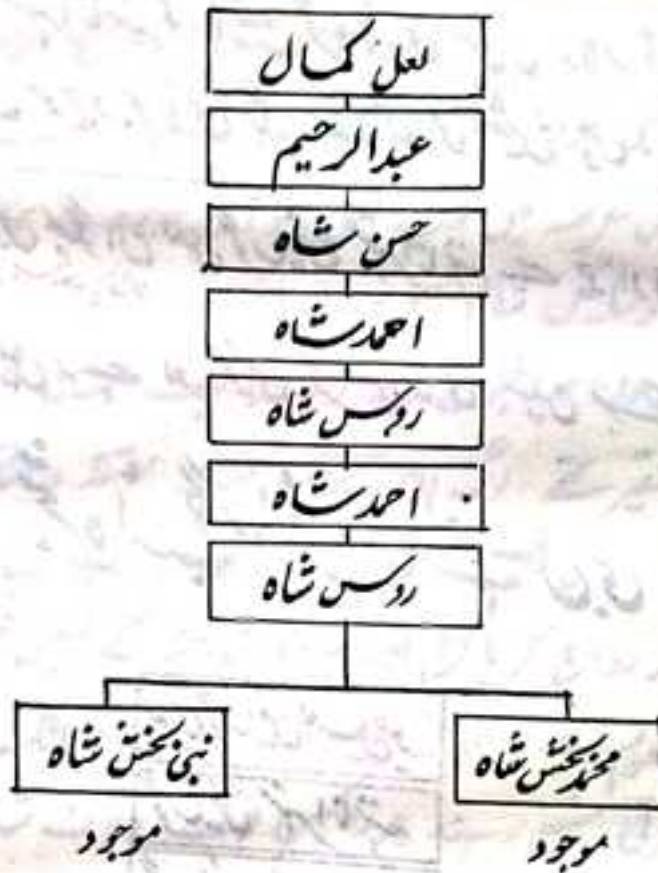 لعل کمال
عبدالرحیم
حسن شاہ
احمد شاہ
روس شاہ
احمد شاہ
روس شاہ
محمد بخش شاہ
نبی بخش شاہ
موجود
موجود